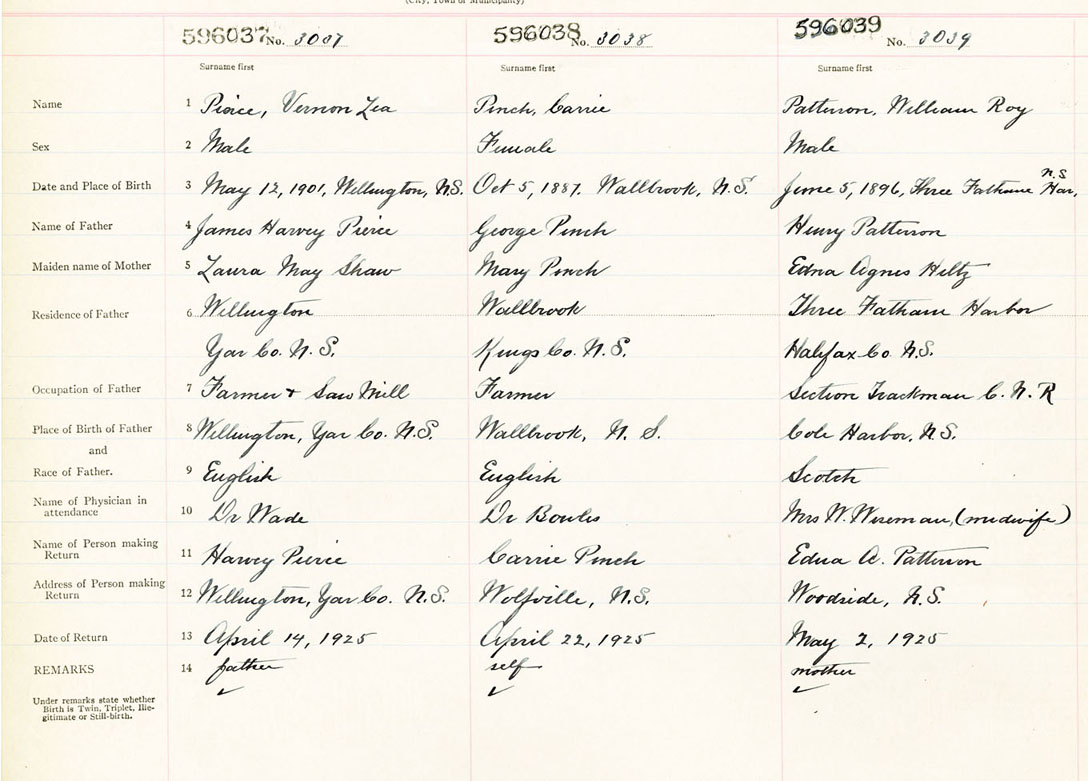 (City, Town or Municipality)
596037 No. 3037 596038 No. 3038 596039 No. 3039
Surname first Surname first Surname first
Name 1 Pierce, Vernon Lea Pinch, Carrie Patterson, William Roy
Sex 2 Male Female Male
Date and Place of Birth 3 May 12, 1901, Wellington, N.S. Oct 5, 1887, Wallbrook, N.S. June 5, 1896, Three Fathom Har, N.S
Name of Father 4 James Harvey Pierce George Pinch Henry Patterson
Maiden name of Mother 5 Laura May Shaw Mary Pinch Edna Agnes Hiltz
Residence of Father 6 Wellington Wallbrook Three Fathom Harbor
Yar Co. N.S. Kings Co. N.S. Halifax Co N.S.
Occupation of Father 7 Farmer + Saw Mill Farmer Section Trackman C.N.R
Place of Birth of Father 8 Wellington, Yar Co. N.S. Wallbrook, N.S. Cole Harbor, N.S.
and
Race of Father. 9 English English Scotch
Name of Physician in attendance 10 Dr Wade Dr Bowles Mrs W. Wiseman, (midwife)
Name of Person making Return 11 Harvey Pierce Carrie Pinch Edna A. Patterson
Address of Person making Return 12 Wellington, Yar Co. N.S. Wolfville, N.S. Woodside, N.S.
Date of Return 13 April 14, 1925 April 22, 1925 May 2, 1925
REMARKS 14 father self mother
Under remarks state whether
Birth is Twin, Triplet, Ille-
gitimate or Still-birth.